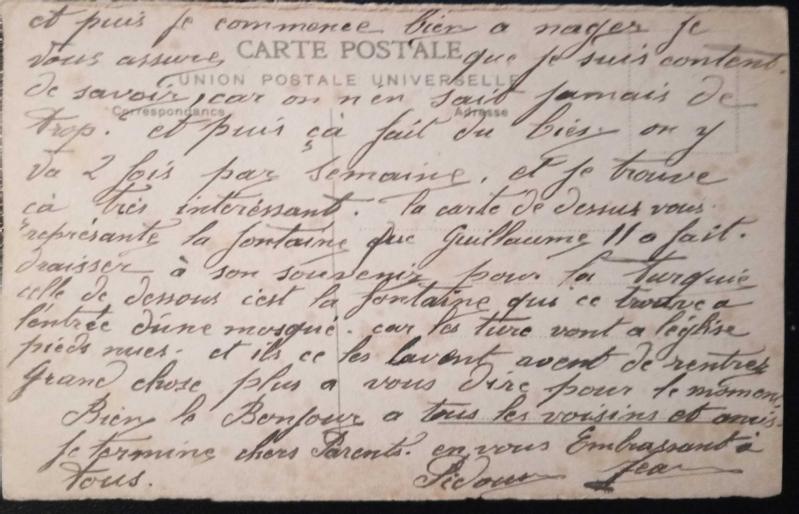 et puis je commence bien a nager je
CARTE POSTALE
vous assure que je suis content
UNION POSTALE UNIVERSELLE
de savoir, car on n'en sait jamais de
Correspondance
Adresse
trop. et puis çà fait du bien on y
va 2 fois par semaine, et je trouve
çà très intéressant. la carte de dessus vous
représante la fontaine que Guillaume II a fait
draisser à son souvenir pour la turquie
celle de dessous c'est la fontaine qui ce trouve a
l'entrée d'une mosqué. car les turc vont a l'église
pieds nues. et ils ce les lavent avent de rentrer
Grand chose plus a vous dire pour le moment
Bien le Bonjour a tous les voisins et amis
Je termine chers Parents. en vous Embrassant à
tous.